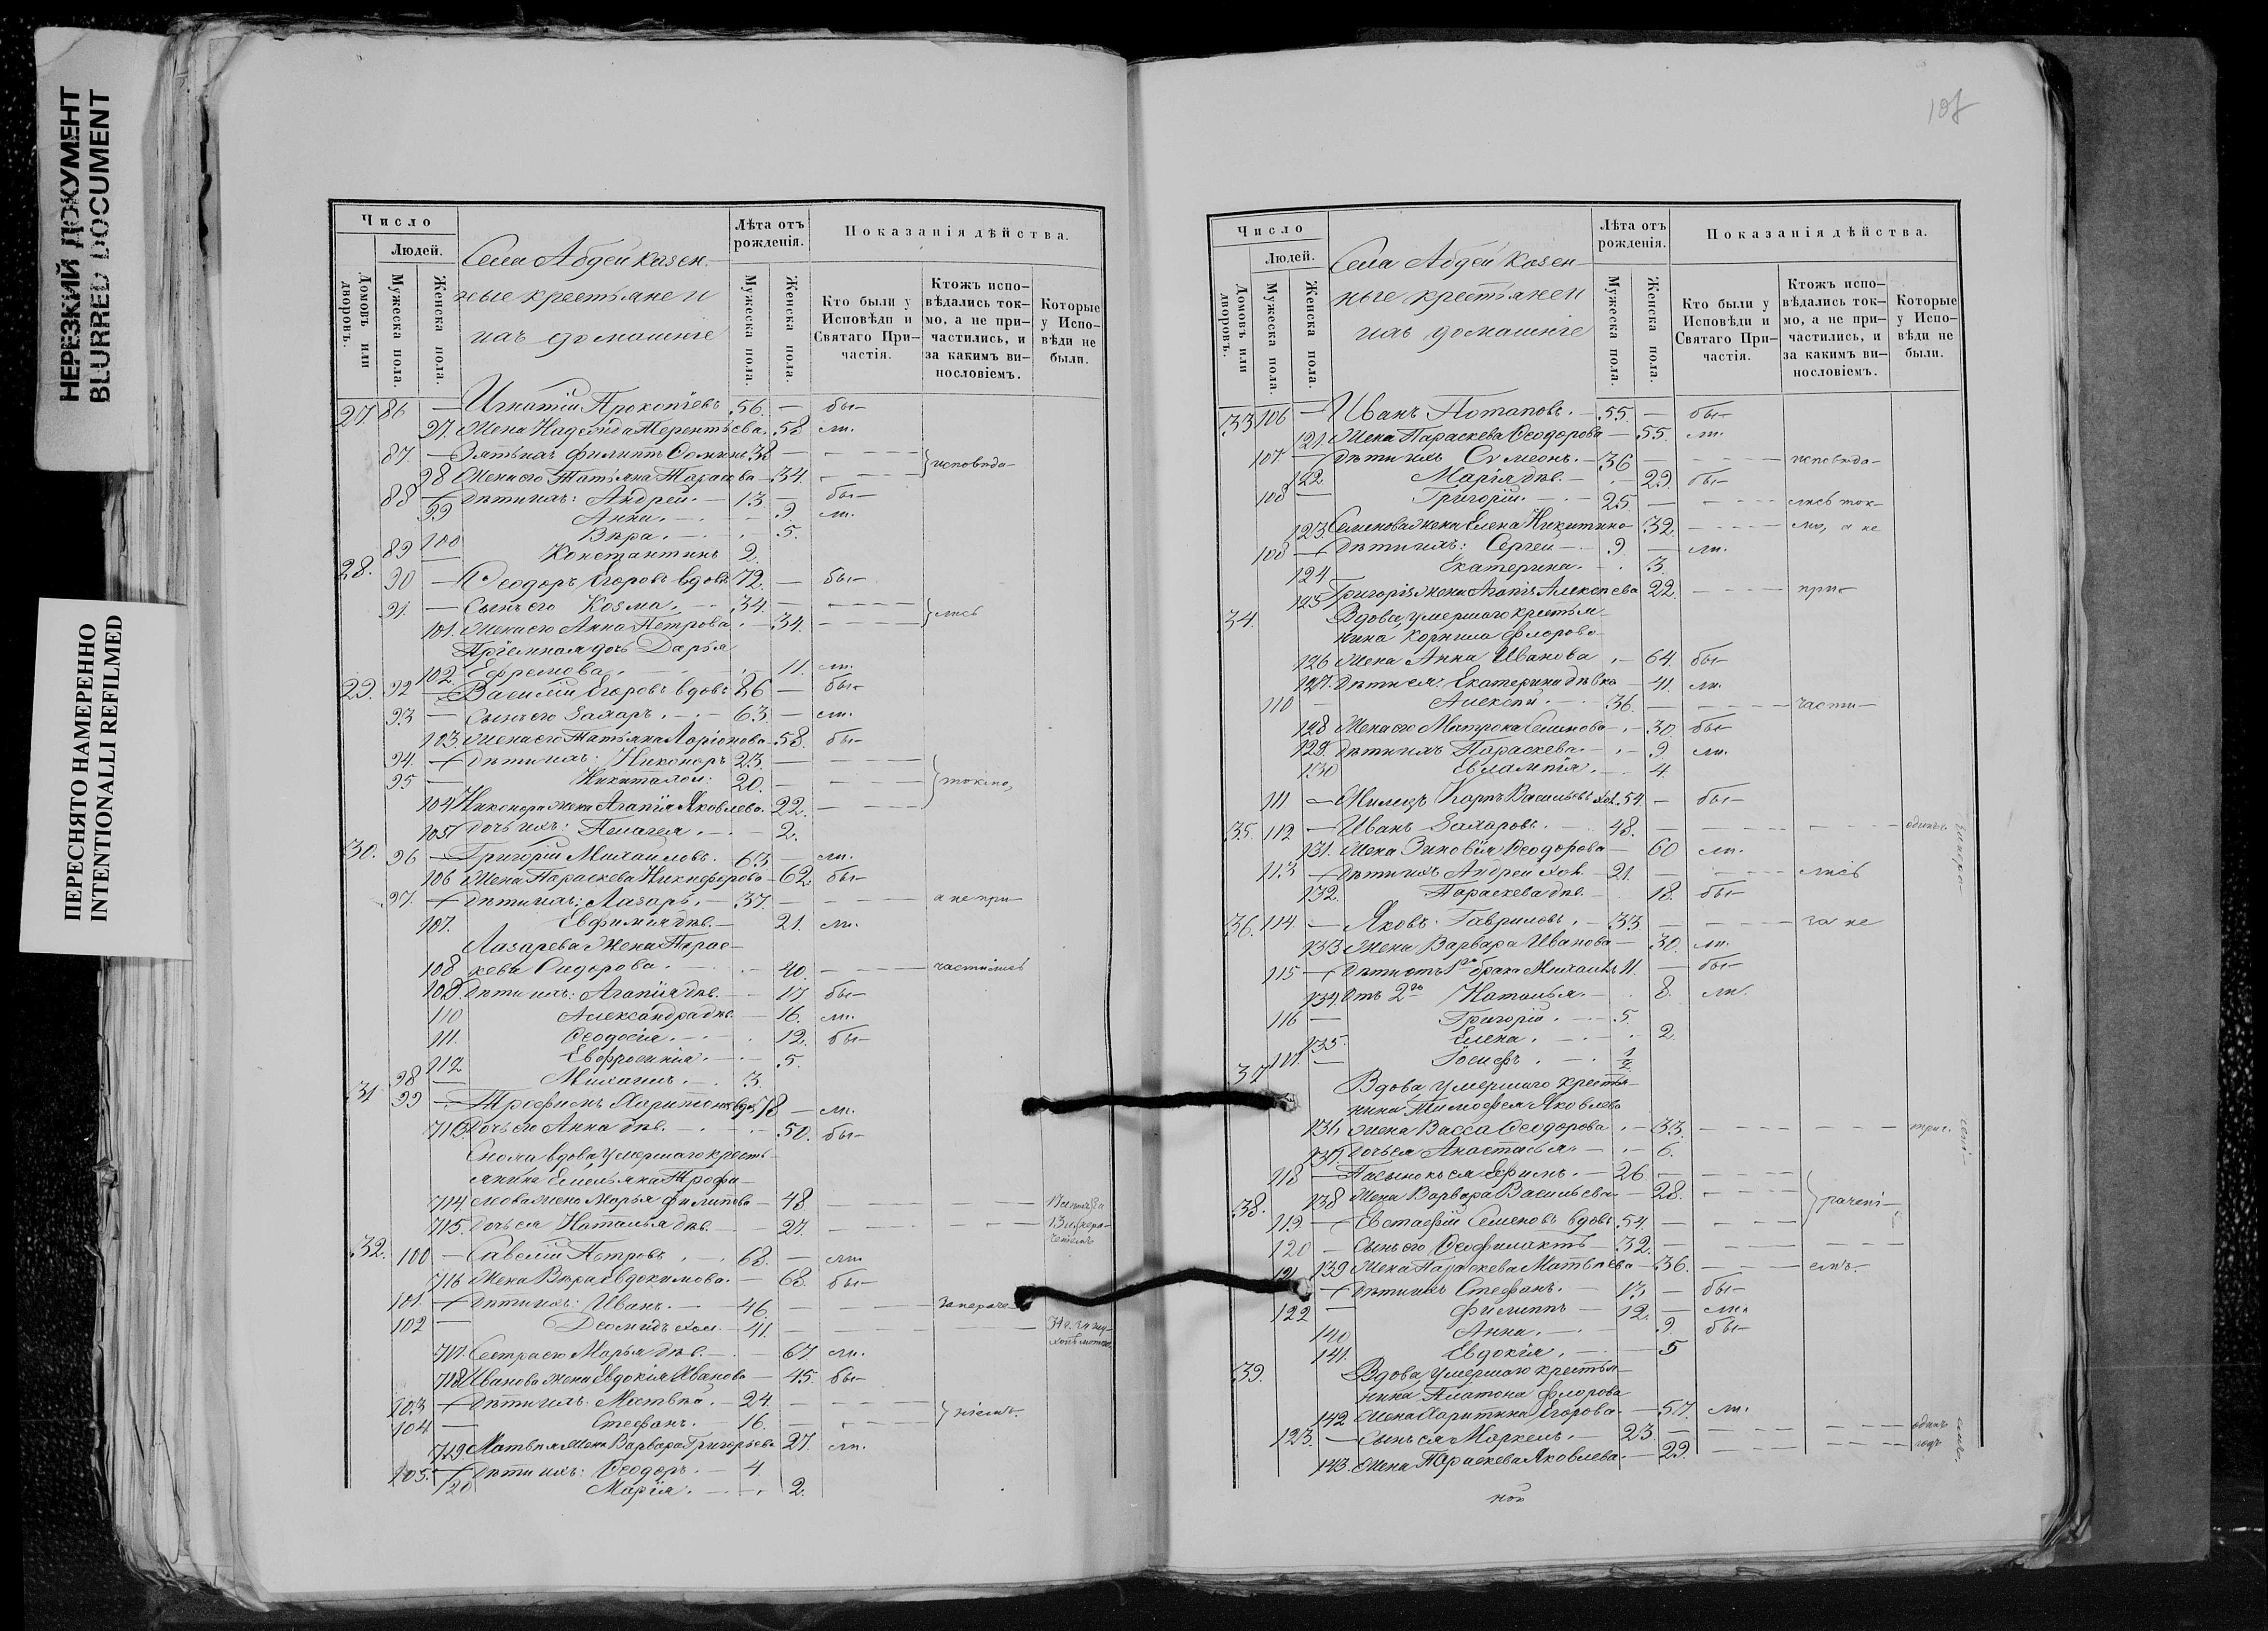 НЕРЕЗКИЙ ДОКУМЕНТ
BLURRED DOCUMENT
ПЕРЕСНЯТО НАМЕРЕННО
INTENTIONALLI REFILMED
Число
Людей.
Домовъ или дворовъ.
Мужеска пола.
Женска пола.
Села Абдеи казен-
ные крестьяне и
ихъ домашніе
Лѣта отъ рожденія.
Мужеска пола.
Женска пола.
Показанія дѣйства.
Кто были у Исповѣди и Святаго При-частія.
Ктожъ испо-вѣдались ток-мо, а не при-частились, и за какимъ ви-нословіемъ.
Которые у Испо-вѣди не были.
27. 86 — Игнатій Прокопіевъ 56. — бы-
97. Жена Надежда Терентьева. 58 ли.
87. — Зять ихъ Филиппъ Ѳомин 38 — исповѣда-
98 Жена его Татьяна Тарасова — 34.
88 — Дѣти ихъ: Андрей. — 13 — бы-
99 Анна. — 9. ли.
100 Вѣра. — 5.
89 — Константинъ 2.
28. 90 — Ѳеодоръ Егоровъ вдовъ 72. — бы-
91. — Сынъ его Козма. — 34. — лись
101. Жена его Анна Петрова. — 34.
Пріемная дочь Дарья
102. Ефремова. 11. ли.
29. 92 — Василій Егоровъ вдовъ 86 — бы-
93 — Сынъ его Захаръ. — 63. — ли.
103. Жена его Татьяна Ларіонова 58. бы-
94. — Дѣти ихъ: Никоноръ 23. —
95 — Никита хол: 20. — токмо,
104 Никонора жена Агапія Яковлева. 22.
105 Дочь ихъ: Пелагея. — 2.
30. 96 — Григорій Михаиловъ. 63. — ли.
106 Жена Параскева Никифорова — 62. бы-
97. — Дѣти ихъ: Лазарь. — 37. — а не при-
107. Евфимія дѣв. — 21. ли.
Лазарева жена Парас-
108 кева Сидорова. — 40. — частились
109. Дѣти ихъ: Агапія дѣв. — 17 бы-
110 Александра дѣв. — 16. ли.
111. Ѳеодосія. — 12. бы-
112 Евфросинія. — 5.
98 — Михаилъ. — 3.
31. 99 — Трофимъ Харитоновъ вдов 78 — ли.
113 Дочь его Анна дѣв. — 50. бы-
Сноха вдова умершаго кресть-
янина Емельяна Трофи-
114. мова жена Марья Филипова — 48.
115. Дочь ея Наталья дѣв. — 27.
32. 100 — Савелій Петровъ. — 68. — ли
116 Жена Вѣра Евдокимова. — 68. бы-
101. — Дѣти ихъ: Иванъ. — 46. — за нераче-
102 — Деомидъ хол. — 41.
117. Сестра его Марья дѣв. — 67. ли.
118 Иванова жена Евдокія Иванова — 45. бы-
103 — Дѣти ихъ: Матвѣй. — 24. — ніемъ.
104 — Стефанъ. — 16. —
119 Матвѣя жена Варвара Григорьева 27. ли.
105. — Дѣти ихъ: Ѳеодоръ. — 4.
120 Марія. — 2.
107
Число
Людей.
Домовъ или дворовъ.
Мужеска пола.
Женска пола.
Села Абдеи казен-
ные крестьяне и
ихъ домашніе
Лѣта отъ рожденія.
Мужеска пола.
Женска пола.
Показанія дѣйства.
Кто были у Исповѣди и Святаго При-частія.
Ктожъ испо-вѣдались ток-мо, а не при-частились, и за какимъ ви-нословіемъ.
Которые у Испо-вѣди не были.
33 106 — Иванъ Потаповъ. — 55. — бы-
121. Жена Параскева Ѳеодорова — 55. ли.
107 — Дѣти ихъ Сумеонъ. — 36 — исповѣда-
122. Марія дѣв. — 29. бы-
108 — Григорій. — 25 — лись ток-
123. Семенова жена Елена Никитина 32. — мо, а не
109 — Дѣти ихъ: Сергей — 9. — ли.
124 Екатерина. — 3.
125 Григорія жена Агапія Алексѣева 22. — при-
34. Вдова, умершаго крестья-
нина Корнила Флорова
126 жена Анна Иванова. — 64. бы-
127. Дѣти ея: Екатерина дѣвка — 41. ли.
110 — Алексѣй. — 36. — части-
128 Жена его Матрона Семенова. — 30. бы-
129. Дѣти ихъ Параскева. — 9. ли.
130 Евлампія. — 4.
111 — Жилецъ Карпъ Васильевъ хол. 54. — бы-
35. 112 — Иванъ Захаровъ. — 48. — одинъ.
131. Жена Зиновія Ѳеодорова — 60 ли.
113 — Дѣти ихъ Андрей хол. — 21. — лись
132. Параскева дѣв. — 18. бы-
36. 114. — Яковъ Гавриловъ. — 33. — за не
133 Жена Варвара Иванова — 30. ли.
115 — Дѣти отъ 1го брака Михаилъ 11. — бы-
134. Отъ 2го Наталья. — 8. ли.
116 — Григорій. — 5.
135. Елена. — 2.
117. — Іосифъ. — 1/2
37 Вдова, умершаго кресть-
янина Тимофея Яковлева
136 жена Васса Ѳеодорова. — 33. — три.
137 Дочь ея Анастасья — 6.
118 — Пасынокъ ея Ефимъ. — 26 —
138 Жена Варвара Васильева — 28. — рачені-
38. 119. — Евстафій Семеновъ вдовъ 54. —
120 — Сынъ его Ѳеофилактъ — 32. —
139 Жена Параскева Матвѣева — 36. — емъ.
121 — Дѣти ихъ Стефанъ. — 13 — бы-
122 — Филиппъ — 12. — ли.
140 Анна. — 9. бы-
141. Евдокія. — 5
39. Вдова умершаго крестья-
нина Платона Флорова
142 жена Харитина Егорова. — 57. ли.
123. — Сынъ ея Маркелъ. — 23. — одинъ
143. Жена Параскева Яковлева. — 29. — годъ
ной